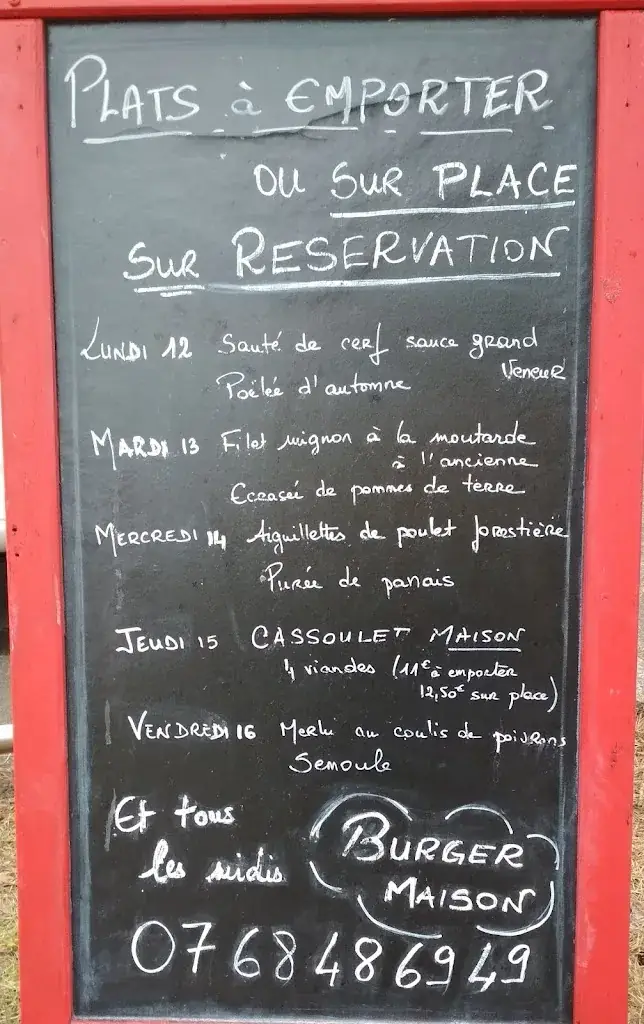 PLATS à EMPORTER
OU SUR PLACE
SUR RESERVATION
LUNDI 12 Sauté de cerf sauce grand
Veneur
Poêlée d'automne
MARDI 13 Filet mignon à la moutarde
à l'ancienne
Ecrasé de pommes de terre
MERCREDI 14 Aiguillettes de poulet forestière
Purée de panais
JEUDI 15 CASSOULET MAISON
4 viandes (11€ à emporter
12,50€ sur place)
VENDREDI 16 Merlu au coulis de poivrons
Semoule
Et tous
les midis
BURGER
MAISON
0768486949